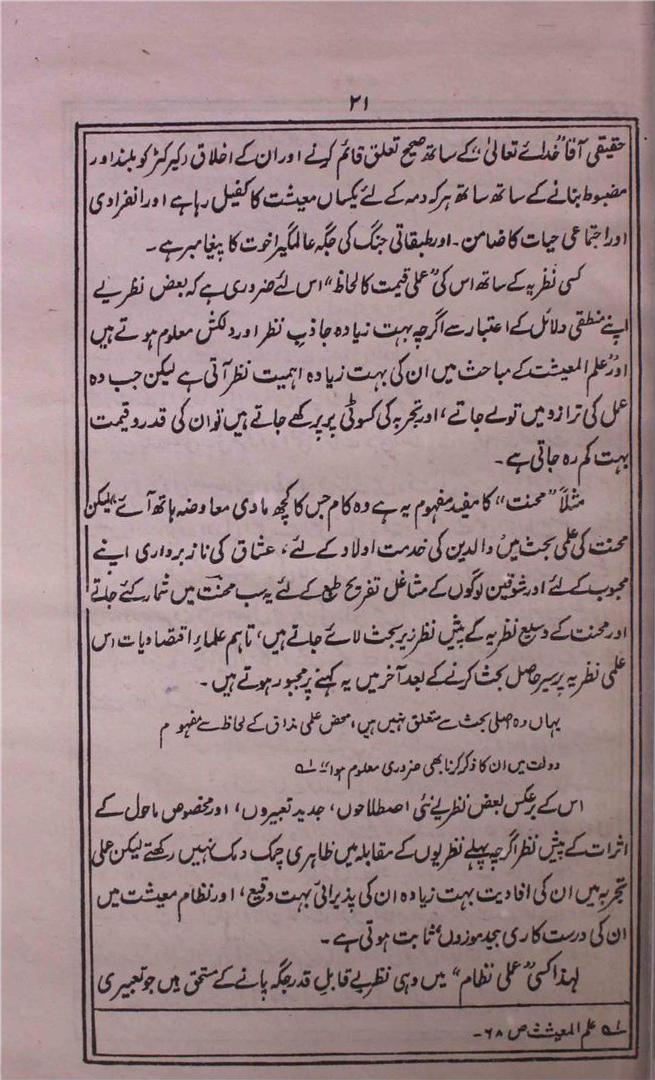 ۲۱
حقیقی آقا "خدائے تعالیٰ" کے ساتھ صحیح تعلق قائم کرنے اور ان کے اخلاق و کیرکٹر کو بلند اور
مضبوط بنانے کے ساتھ ساتھ ہر کہ دمہ کے لئے یکساں معیشت کا کفیل رہا ہے اور انفرادی
اور اجتماعی حیات کا ضامن۔ اور طبقاتی جنگ کی جگہ عالمگیر اخوت کا پیغامبر ہے۔
کسی نظریہ کے ساتھ اس کی "عملی قیمت کا لحاظ" اس لئے ضروری ہے کہ بعض نظریے
اپنے منطقی دلائل کے اعتبار سے اگرچہ بہت زیادہ جاذبِ نظر اور دلکش معلوم ہوتے ہیں
اور "علم المعیشت" کے مباحث میں ان کی بہت زیادہ اہمیت نظر آتی ہے لیکن جب وہ
عمل کی ترازو میں تولے جاتے، اور تجربہ کی کسوٹی پر پرکھے جاتے ہیں تو ان کی قدر و قیمت
بہت کم رہ جاتی ہے۔
مثلاً "محنت" کا مفید مفہوم یہ ہے وہ کام جس کا کچھ مادی معاوضہ ہاتھ آئے" لیکن
محنت کی علمی بحث میں والدین کی خدمت اولاد کے لئے، عشاق کی ناز برداری اپنے
محبوب کے لئے اور شوقین لوگوں کے مشاغل تفریح طبع کے لئے یہ سب محنت میں شمار کئے جاتے
اور محنت کے وسیع نظریہ کے پیش نظر زیر بحث لائے جاتے ہیں، تاہم علماءِ اقتصادیات اس
علمی نظریہ پر سیر حاصل بحث کرنے کے بعد آخر میں یہ کہنے پر مجبور ہوتے ہیں۔
یہاں وہ اصلی بحث سے متعلق نہیں ہیں، محض علمی مذاق کے لحاظ سے مفہوم
دولت میں ان کا ذکر کرنا بھی ضروری معلوم ہوا" ؎۱
اس کے برعکس بعض نظریے نئی اصطلاحوں، جدید تعبیروں، اور مخصوص ماحول کے
اثرات کے پیش نظر اگرچہ پہلے نظریوں کے مقابلہ میں ظاہری چمک دمک نہیں رکھتے لیکن عملی
تجربہ میں ان کی افادیت بہت زیادہ ان کی پذیرائی بہت وقیع، اور نظام معیشت میں
ان کی درست کاری بیحد موزوں ثابت ہوتی ہے۔
لہذا کسی "عملی نظام" میں وہی نظریے قابلِ قدر جگہ پانے کے مستحق ہیں جو تعبیری
؎۱ علم المعیشت ص ۶۸۔